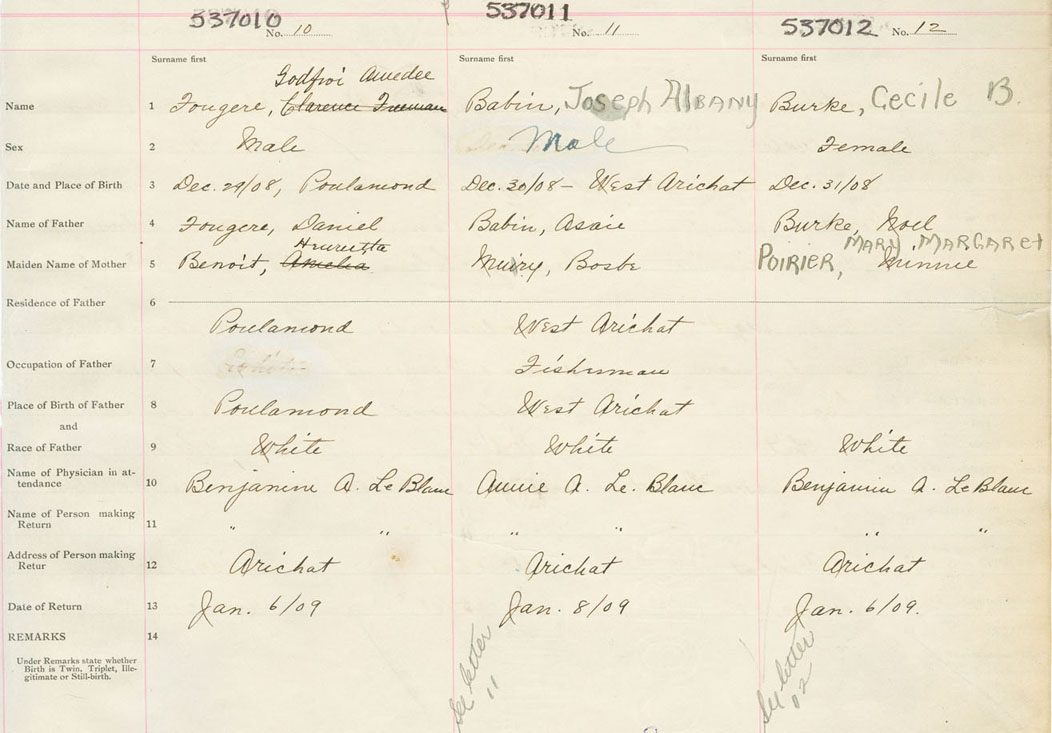 537010 No. 10 537011 No. 11 537012 No. 12
Surname first Surname first Surname first
Godfroi Amedee
Name 1 Fougere, Clarence Freeman Babin, Joseph Albany Burke, Cecile B.
Sex 2 Male Male Female
Date and Place of Birth 3 Dec. 29/08, Poulamond Dec. 30/08 - West Arichat Dec. 31/08
Name of Father 4 Fougere, Daniel Babin, Asaie Burke, Noel
Henrietta MARY MARGARET
Maiden Name of Mother 5 Benoit, Amelia Bosbe POIRIER, Minnie
Residence of Father 6
Poulamond West Arichat
Occupation of Father 7 Fisherman
Place of Birth of Father 8 Poulamond West Arichat
and
Race of Father 9 White White White
Name of Physician in at-
tendance 10 Benjamin A. Le Blanc Annie A. Le. Blanc Benjamin A. Le Blanc
Name of Person making
Return 11 " " " " " "
Address of Person making
Retur 12 Arichat Arichat Arichat
Date of Return 13 Jan. 6/09 Jan. 8/09 Jan. 6/09.
REMARKS 14
Under Remarks state whether
Birth is Twin, Triplet, Ille-
gitimate or Still-birth.
See letter
11
See letter
12